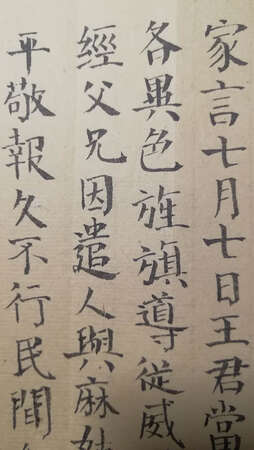 家言七月七日王君當
各異色旌旗導從威
經父兄因遣人與麻姑
平敬報久不行民間